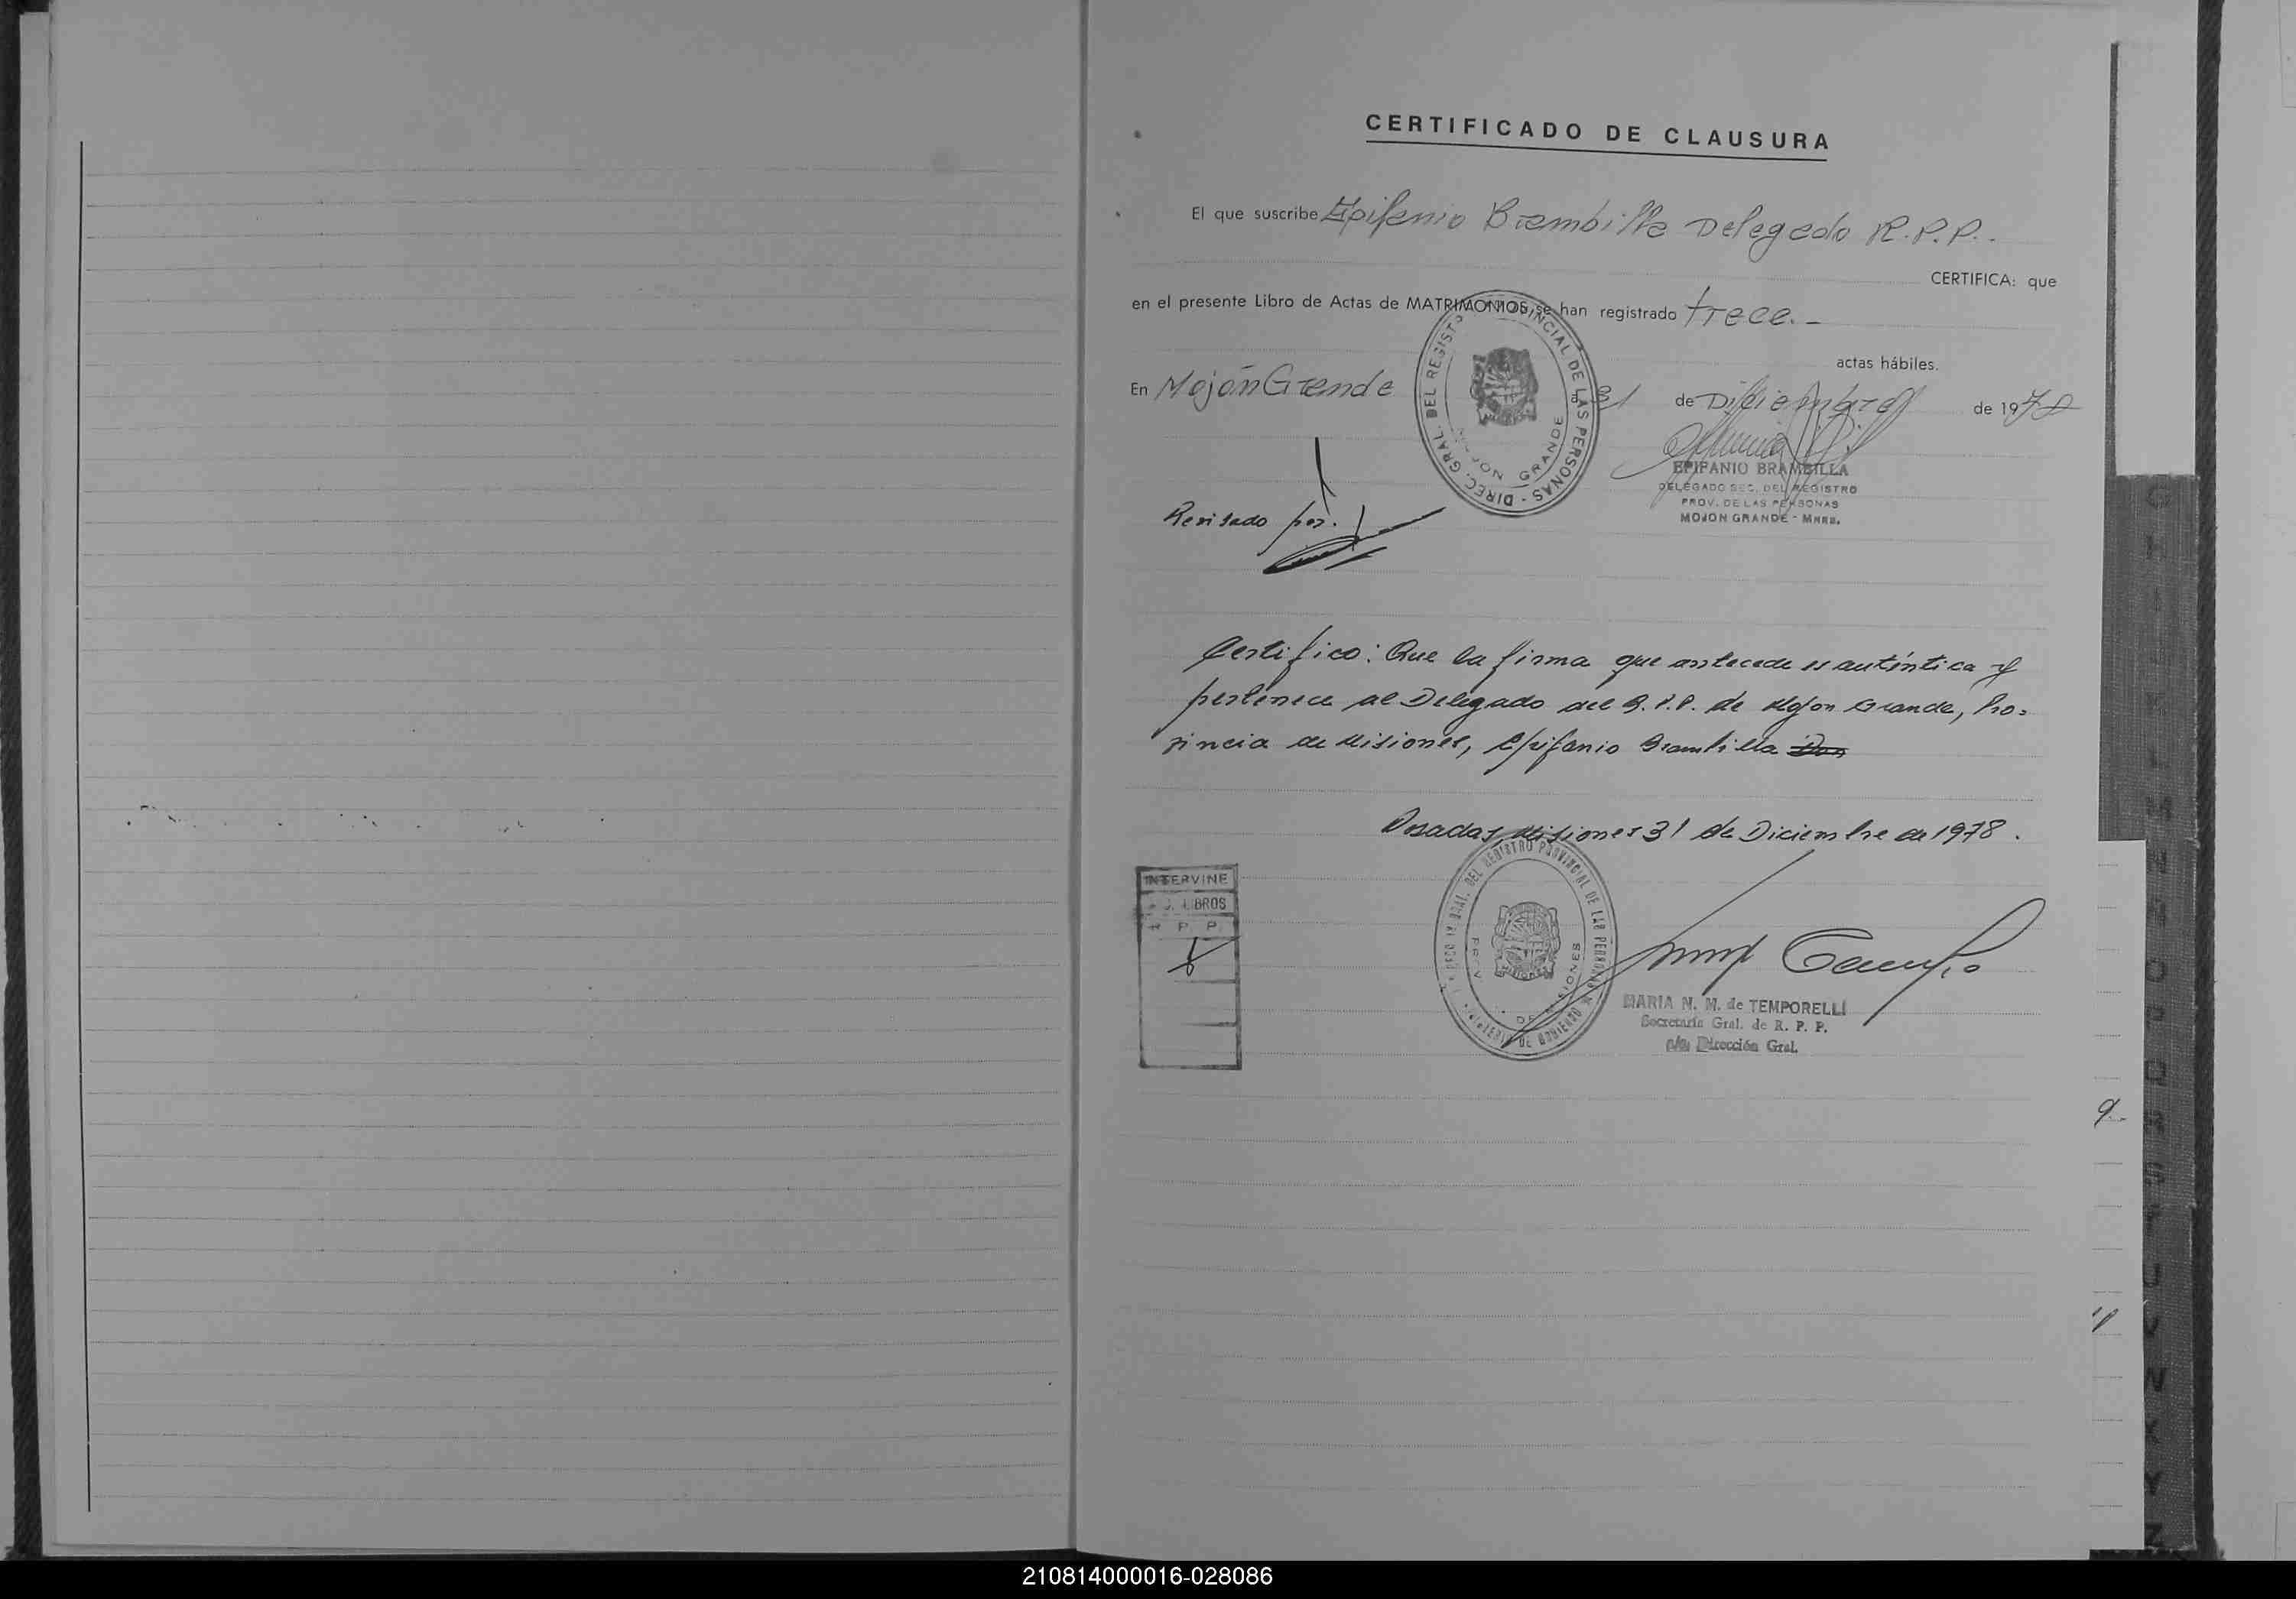 CERTIFICADO DE CLAUSURA
El que suscribe Epifanio Brambilla Delegado R.P.P..
CERTIFICA: que
en el presente Libro de Actas de MATRIMONIOS, se han registrado trece.-
actas hábiles.
En Mojón Grande a 31 de Diciembre de 1978
DIREC. GRAL. DEL REGISTRO PROVINCIAL DE LAS PERSONAS -
MOJON GRANDE
EPIFANIO BRAMBILLA
DELEGADO SEC. DEL REGISTRO
PROV. DE LAS PERSONAS
MOJON GRANDE - Mnes.
Revisado por.
Certifico: Que la firma que antecede es auténtica y
pertenece al Delegado del R.P.P. de Mojon Grande, Pro=
vincia de Misiones, Epifanio Brambilla Don
Posadas, Misiones 31 de Diciembre de 1978.
INTERVINE
LIBROS
R P P
GRAL. DEL REGISTRO PROVINCIAL DE LAS PERSONAS
MINISTERIO DE GOBIERNO
PROV. DE MISIONES
MARIA N. M. de TEMPORELLI
Secretaria Gral. de R. P. P.
a/c Dirección Gral.
210814000016-028086